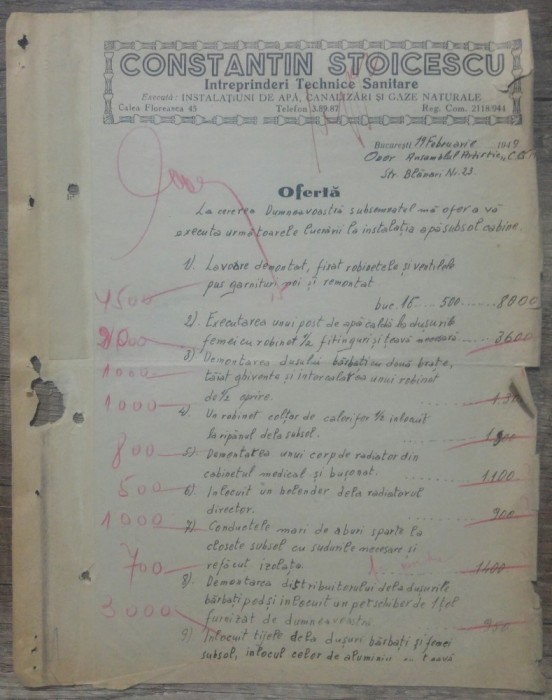 CONSTANTIN STOICESCU
Intreprinderi Technice Sanitare
Execută: INSTALAȚIUNI DE APĂ, CANALIZĂRI ȘI GAZE NATURALE
Calea Floreasca 45 Telefon 3.89.87 Reg. Com. 2118/944
București 19 Februarie 1949
Onor Ansamblul Artistic
Str. Blănari Nr. 23.
Ofertă
La cererea Dumneavoastră subsemnatul mă ofer a vă
executa următoarele lucrări la instalația apă subsol cabine.
1) Lavoare demontat, fixat robinetele și ventilele
pus garnituri noi și remontat
4500 buc. 16 .... 500 .... 8000
2). Executarea unui post de apă caldă la dușurile
2000 femei cu robinet ½ fitinguri și țeavă necesară 3600
3) Demontarea dusului bărbați cu două brațe,
1000 tăiat ghivente și intercalarea unui robinet
de ½ oprire.
1000 4- Un robinet colțar de calorifer ½ inlocuit
la dela subsol. 1900
800 5). Demontarea unui corp de radiator din
cabinetul medical și bușonat. 1100
500 6) Inlocuit un holender dela radiatorul
director. 900
1000 7) Conductele mari de aburi sparte la
closete subsol cu sudurile necesare și
700 refăcut izolația. 1400
8) Demontarea distribuitorului dela dușurile
bărbați pod și inlocuit un
3000 furnizat de dumneavoastră 950
9) Inlocuit tijele dela dușuri bărbați și femei
subsol, inlocul celor de aluminiu țeavă